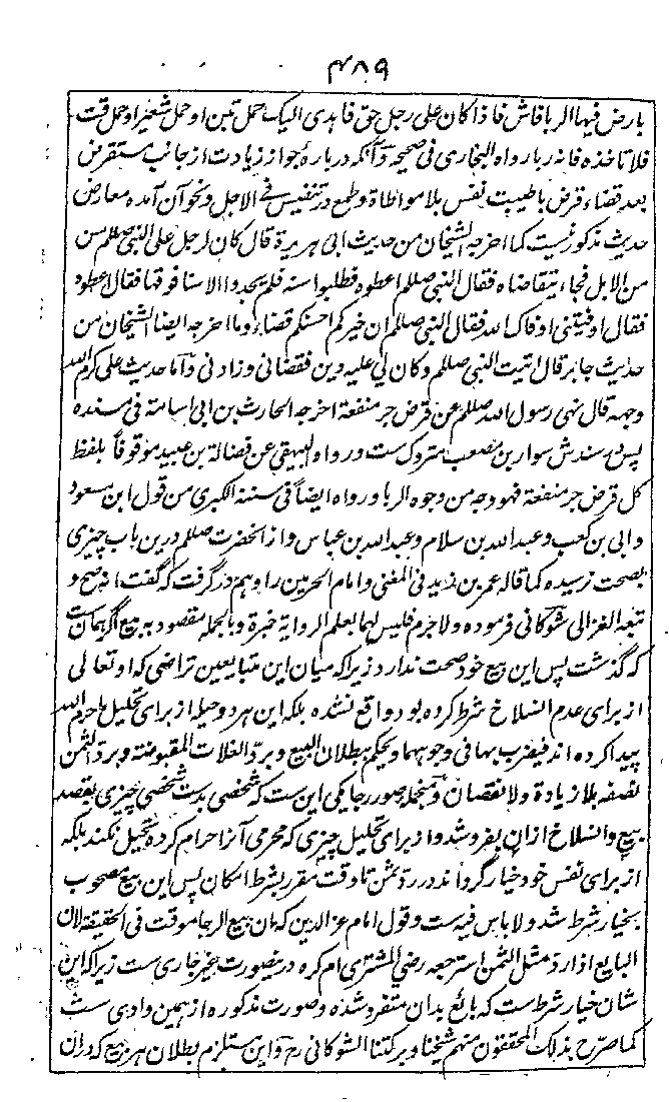 ۴۸۹
بارض فیها الربا فاش فاذا کان علی رجل حق فاهدی الیک حمل تبن او حمل شعیر او حمل قت
فلا تاخذه فانه ربا رواه البخاری فی صحیحه و آنکه درباره جواز زیادت از جانب مستقرض
بعد قضاء قرض باطیبت نفس بلا مواطاة و طمع در تنفیس فی الاجل و نحو آن آمده معارض
حدیث مذکور نیست کما اخرجه الشیخان من حدیث ابی هریرة قال کان لرجل علی النبی صلعم سن
من الابل فجاء یتقاضاه فقال النبی صلعم اعطوه فطلبوا سنه فلم یجدوا الا سنا فوقها فقال اعطوه
فقال اوفیتنی اوفاک الله فقال النبی صلعم ان خیرکم احسنکم قضاء و ما اخرجه ایضا الشیخان من
حدیث جابر قال اتیت النبی صلعم و کان لی علیه دین فقضانی و زادنی و اما حدیث علی کرم الله
وجهه قال نهی رسول الله صلعم عن قرض جر منفعة اخرجه الحارث بن ابی اسامة فی مسنده
پس در سندش سوار بن مصعب متروک ست و رواه البیهقی عن فضالة بن عبید موقوفاً بلفظ
کل قرض جر منفعة فهو وجه من وجوه الربا و رواه ایضاً فی سننه الکبری من قول ابن مسعود
و ابی بن کعب و عبد الله بن سلام و عبد الله بن عباس و از آنحضرت صلعم درین باب چیزی
بصحت نرسیده کما قاله عمر بن زید فی المغنی و امام الحرمین را وهم در گرفت که گفت انه صح و
تبعه الغزالی شوکانی فرموده و لا جرم فلیس لهما بعلم الروایة خبرة و بالجمله مقصود به بیع اگر همان ست
که گذشت پس این بیع خود صحت ندارد زیرا که میان این متبایعین تراضی که او تعالی
از برای عدم انسلاخ شرط کرده بود واقع نشده بلکه این هر دو حیله از برای تحلیل ما حرم الله
پیدا کرده اند فیضرب بها فی وجوههما و یحکم ببطلان البیع و برد الغلات المقبوضة و برد الثمن
بصفه بلا زیادة و لا نقصان و منجمله صور رجا یکی این ست که شخصی بدست شخصی چیزی بقصد
بیع و انسلاخ ازان بفروشد و از برای تحلیل چیزی که محرمی آنرا حرام کرده تحیل نکند بلکه
از برای نفس خود خیار گرداند در رد ثمن تا وقت مقرر بشرط امکان پس این بیع مصحوب
بخیار شرط شد و لا باس فیه ست و قول امام عز الدین که ان بیع الرجا موقت فی الحقیقة لان
البایع اذا رد مثل الثمن استرجعه رضی المشتری ام کره درینصورت بخیر جاری ست زیرا که این
شان خیار شرط ست که بائع بدان متفرد شده و صورت مذکوره از همین وادی ست
کما صرح بذلک المحققون منهم شیخنا و برکتنا الشوکانی رح و این مستلزم بطلان هر بیع که دران